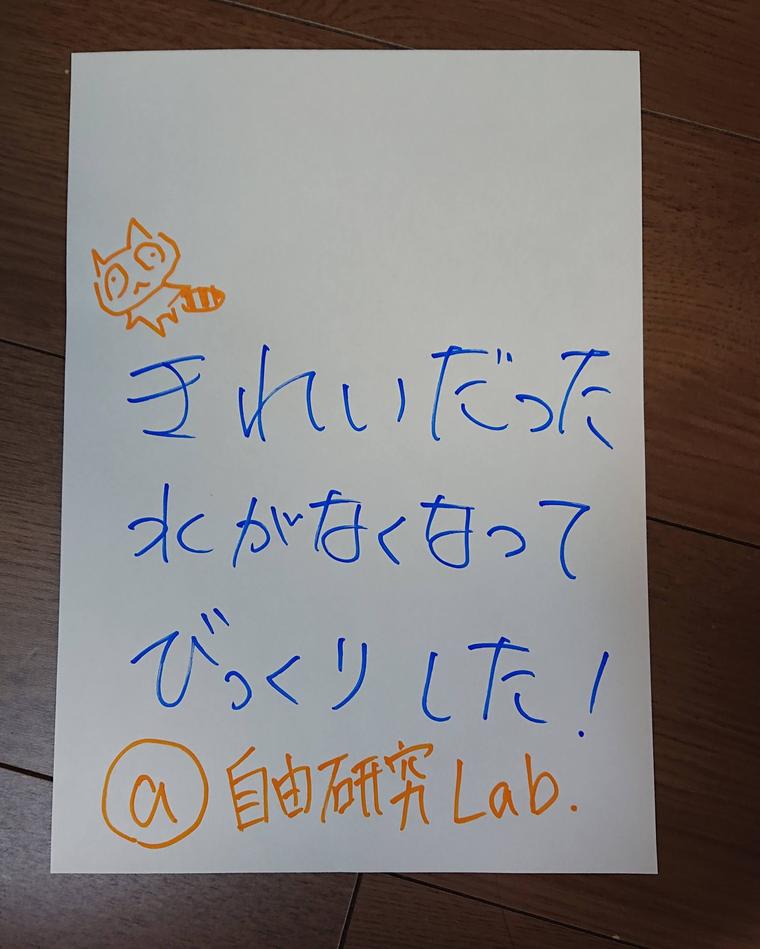 きれいだった
水がなくなって
びっくりした!
ⓐ自由研究Lab.